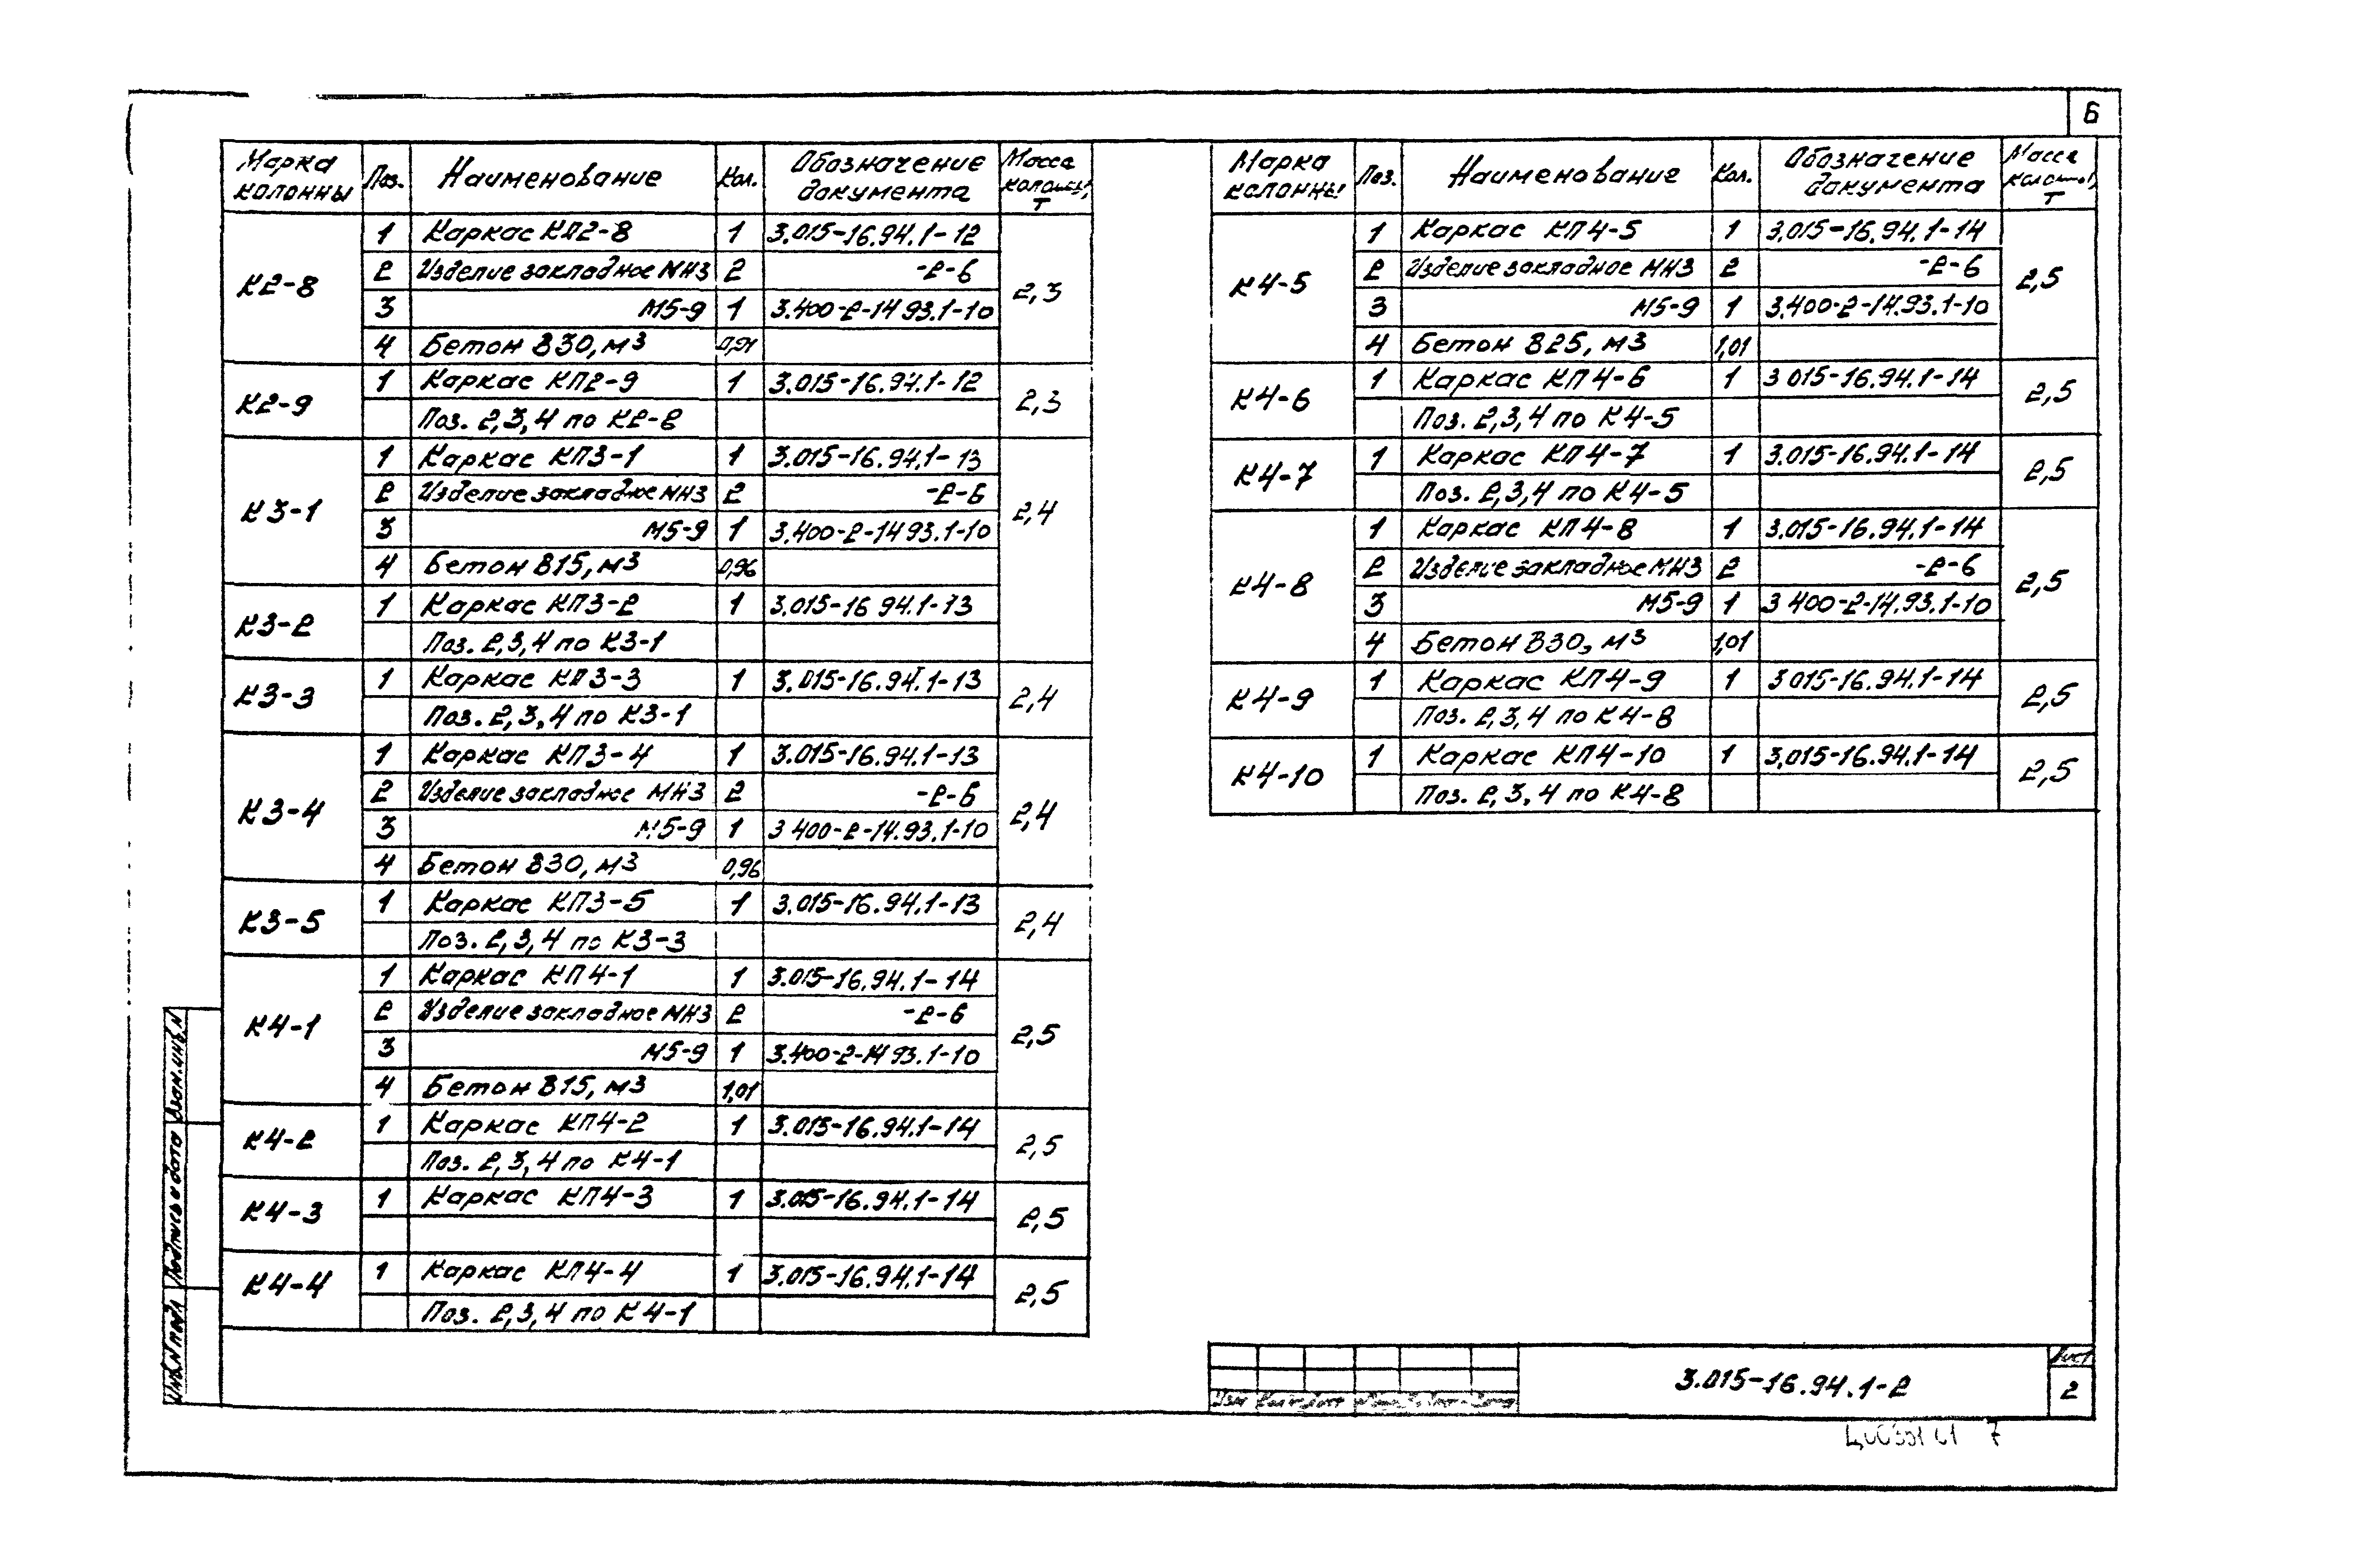 6
Марка колонны Поз. Наименование Кол. Обозначение документа Масса колонны, т
К2-8 1 Каркас КП2-8 1 3.015-16.94.1-12 2,3
2 Изделие закладное МН3 2 -2-6
3 М5-9 1 3.400-2-14 93.1-10
4 Бетон В30, м3 0,91
К2-9 1 Каркас КП2-9 1 3.015-16.94.1-12 2,3
Поз. 2,3,4 по К2-8
К3-1 1 Каркас КП3-1 1 3.015-16.94.1-13 2,4
2 Изделие закладное МН3 2 -2-6
3 М5-9 1 3.400-2-14 93.1-10
4 Бетон В15, м3 0,96
К3-2 1 Каркас КП3-2 1 3.015-16 94.1-13
Поз. 2,3,4 по К3-1
К3-3 1 Каркас КП3-3 1 3.015-16.94.1-13 2,4
Поз. 2,3,4 по К3-1
К3-4 1 Каркас КП3-4 1 3.015-16.94.1-13 2,4
2 Изделие закладное МН3 2 -2-6
3 М5-9 1 3 400-2-14.93.1-10
4 Бетон В30, м3 0,96
К3-5 1 Каркас КП3-5 1 3.015-16.94.1-13 2,4
Поз. 2,3,4 по К3-3
К4-1 1 Каркас КП4-1 1 3.015-16.94.1-14 2,5
2 Изделие закладное МН3 2 -2-6
3 М5-9 1 3.400-2-14 93.1-10
4 Бетон В15, м3 1,01
К4-2 1 Каркас КП4-2 1 3.015-16.94.1-14 2,5
Поз. 2,3,4 по К4-1
К4-3 1 Каркас КП4-3 1 3.015-16.94.1-14 2,5
К4-4 1 Каркас КП4-4 1 3.015-16.94.1-14 2,5
Поз. 2,3,4 по К4-1
Марка колонны Поз. Наименование Кол. Обозначение документа Масса колонны, т
К4-5 1 Каркас КП4-5 1 3.015-16.94.1-14 2,5
2 Изделие закладное МН3 2 -2-6
3 М5-9 1 3.400-2-14.93.1-10
4 Бетон В25, м3 1,01
К4-6 1 Каркас КП4-6 1 3 015-16.94.1-14 2,5
Поз. 2,3,4 по К4-5
К4-7 1 Каркас КП4-7 1 3.015-16.94.1-14 2,5
Поз. 2,3,4 по К4-5
К4-8 1 Каркас КП4-8 1 3.015-16.94.1-14 2,5
2 Изделие закладное МН3 2 -2-6
3 М5-9 1 3 400-2-14.93.1-10
4 Бетон В30, м3 1,01
К4-9 1 Каркас КП4-9 1 3 015-16.94.1-14 2,5
Поз. 2,3,4 по К4-8
К4-10 1 Каркас КП4-10 1 3.015-16.94.1-14 2,5
Поз. 2,3,4 по К4-8
Взам.инв.N
Подпись и дата
Инв.N подл
3.015-16.94.1-2
Лист
2
7